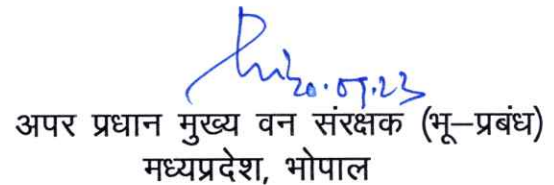 20.07.23
अपर प्रधान मुख्य वन संरक्षक (भू–प्रबंध)
मध्यप्रदेश, भोपाल